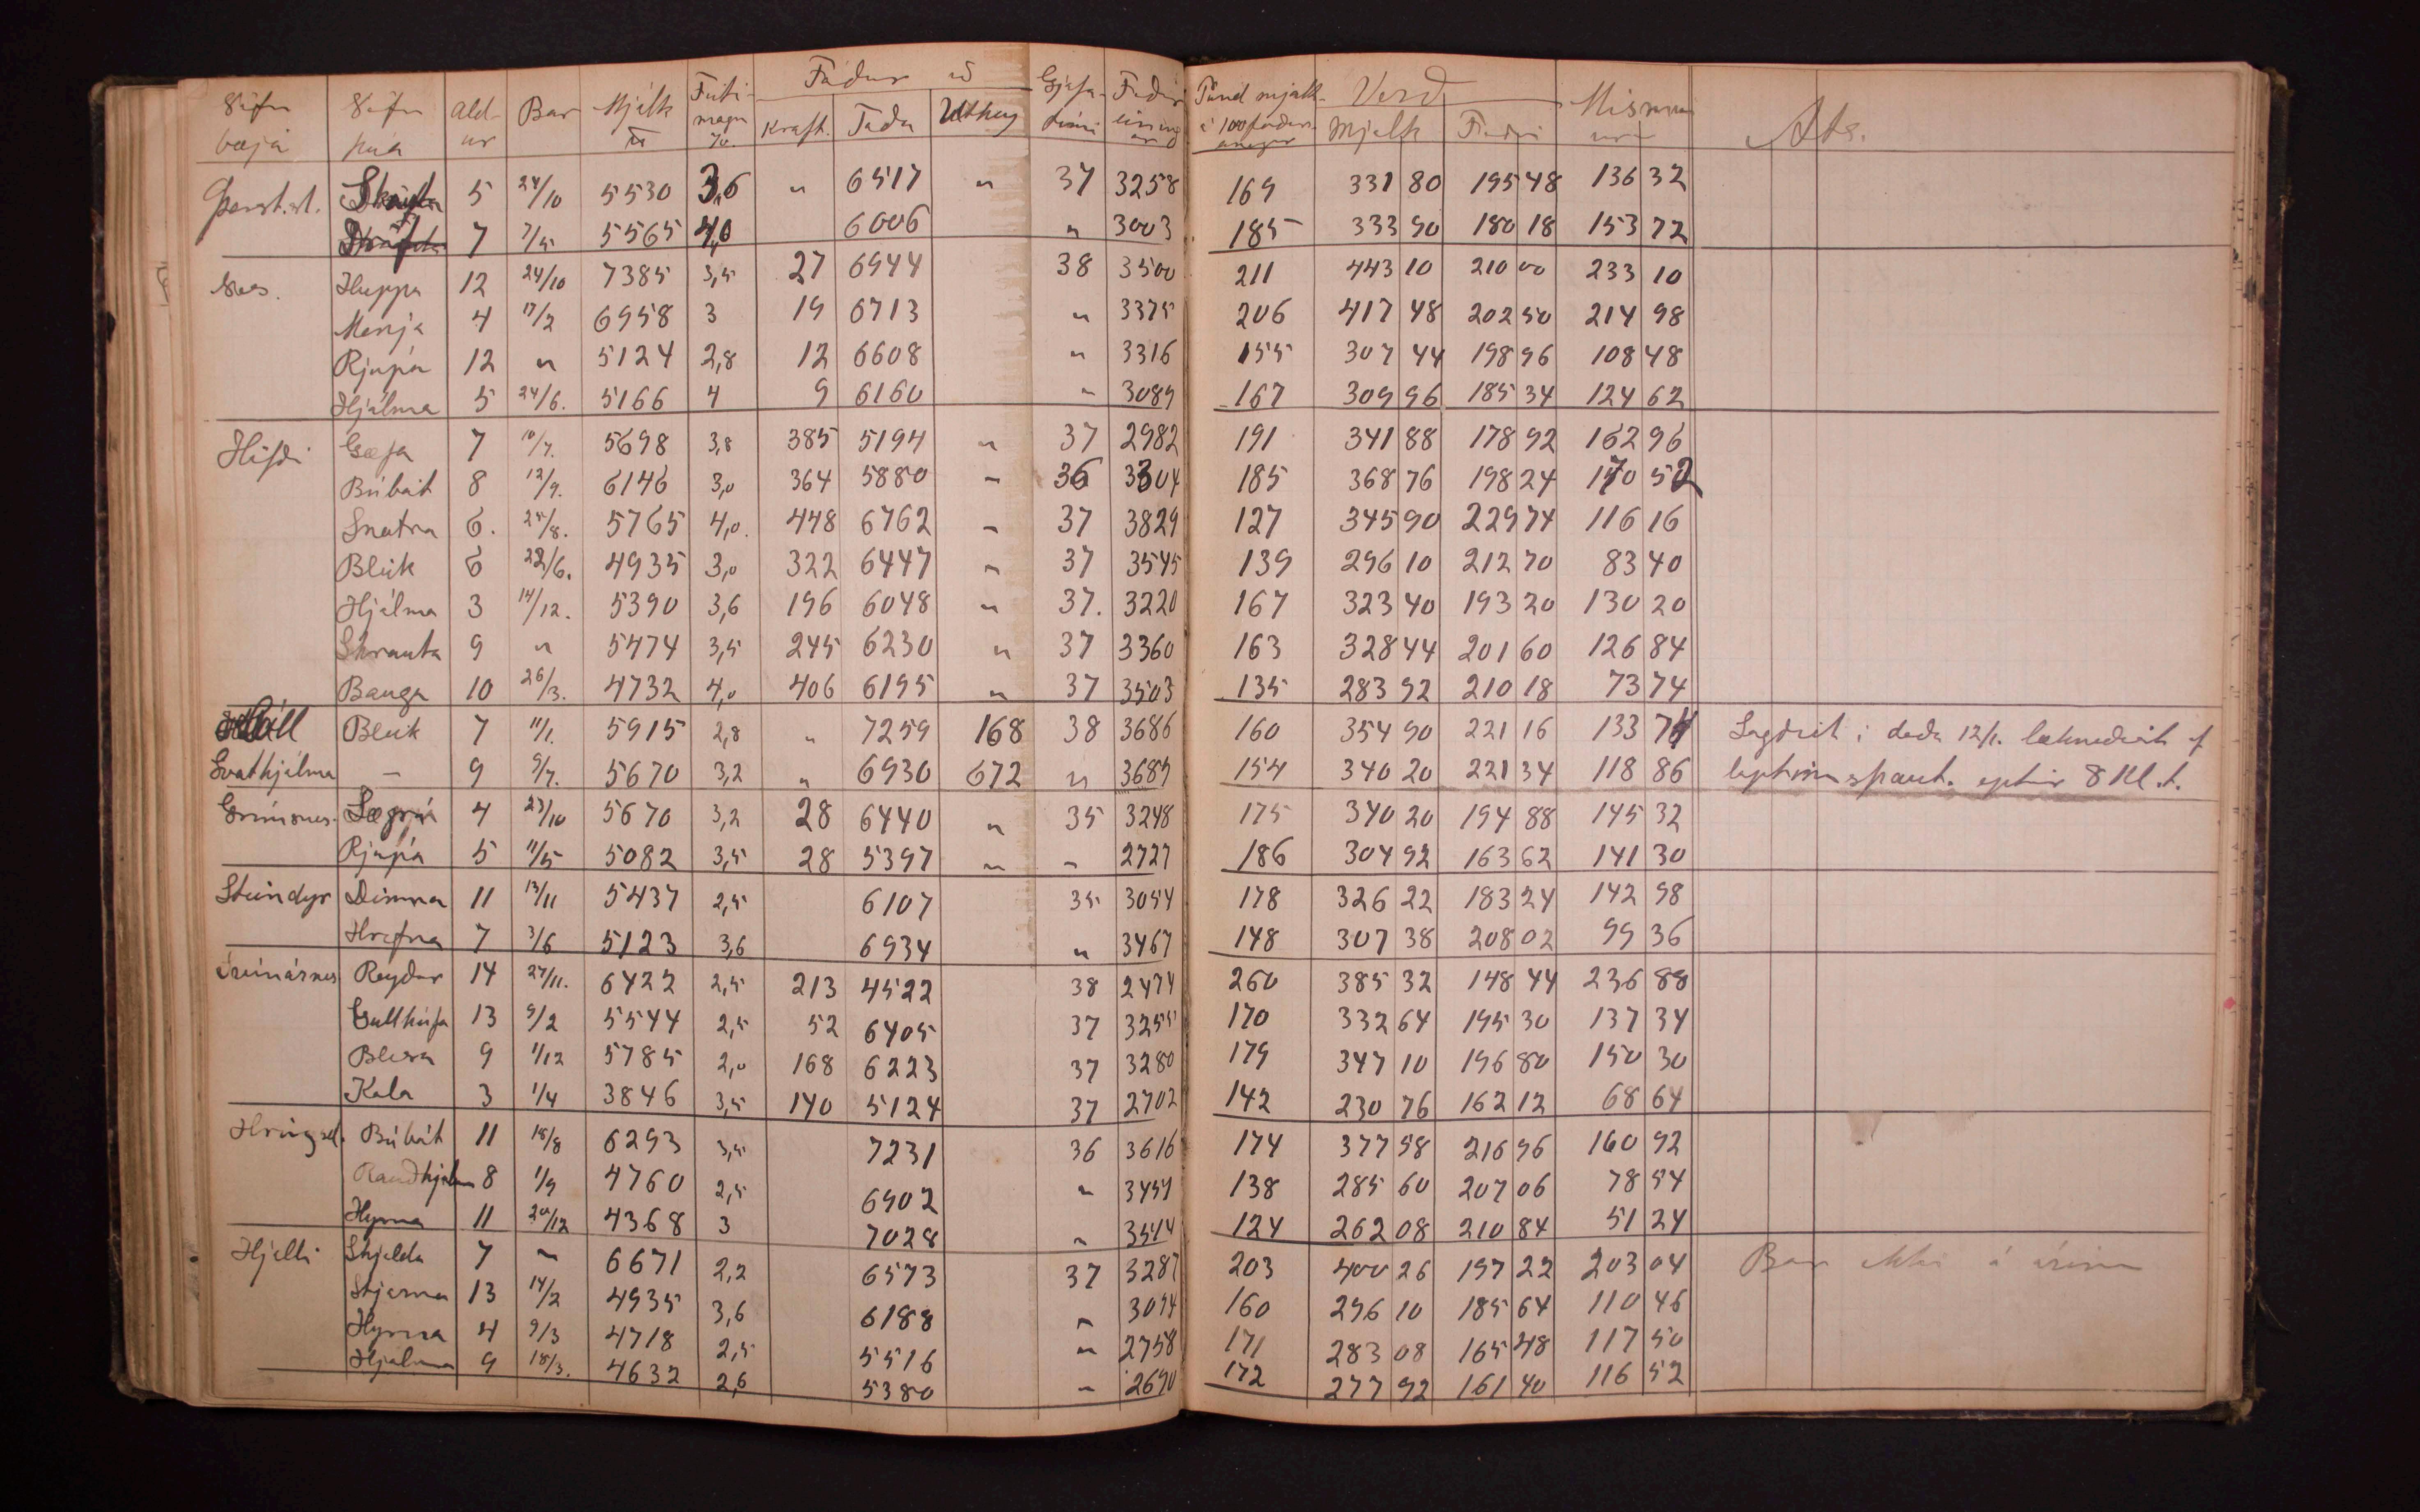 Nöfn bæja | Nöfn kúa | Ald-ur | Bar | Mjólk ℔ | Fiti-magn % | Fóður ℔: Kraft. | Taða | Úthey | Gjafa-tími | Fóður einingar | Pund mjólk. í 100 fóður-einingar | Verð: Mjólk | Fóður | Mismunur | Ath.
Skrauta 5 24/10 5530 3,6 " 6517 " 37 3258 169 331 80 195 48 136 32
7 7/5 5565 4,0 6006 " 3003 185 333 90 180 18 153 72
Nes. Huppa 12 24/10 7385 3,5 27 6944 38 3500 211 443 10 210 00 233 10
Menja 4 17/2 6958 3 19 6713 " 3375 206 417 48 202 50 214 98
Rjúpa 12 " 5124 2,8 12 6608 " 3316 155 307 44 198 96 108 48
Hjálma 5 24/6. 5166 4 9 6160 " 3089 167 309 96 185 34 124 62
Höfði Gæfa 7 10/7. 5698 3,8 385 5194 " 37 2982 191 341 88 178 92 162 96
Búbót 8 12/9. 6146 3,0 364 5880 " 36 3304 185 368 76 198 24 170 52
Snotra 6. 25/8. 5765 4,0. 448 6762 " 37 3829 127 345 90 229 74 116 16
Bleik 6 22/6. 4935 3,0 322 6447 " 37 3545 139 296 10 212 70 83 40
Hjálma 3 14/12. 5390 3,6 196 6048 " 37. 3220 167 323 40 193 20 130 20
Skrauta 9 " 5474 3,5 245 6230 " 37 3360 163 328 44 201 60 126 84
Bauga 10 26/3. 4732 4,0 406 6195 " 37 3503 135 283 92 210 18 73 74
Bleik 7 11/1. 5915 2,8 " 7259 168 38 3686 160 354 90 221 16 133 74
Svarthjálma — 9 9/7. 5670 3,2 " 6930 672 " 3689 154 340 20 221 34 118 86 eptir 8 Kl.t.
Grímsnes. Sægrá 4 23/10 5670 3,2 28 6440 " 35 3248 175 340 20 194 88 145 32
Rjúpa 5 11/5 5082 3,5 28 5397 " " 2727 186 304 92 163 62 141 30
Steindyr Dimma 11 13/11 5437 2,5 6107 35 3054 178 326 22 183 24 142 98
Hrefna 7 3/6 5123 3,6 6934 " 3467 148 307 38 208 02 99 36
Reyður 14 27/11. 6422 2,5 213 4522 38 2474 260 385 32 148 44 236 88
Gullhúfa 13 9/2 5544 2,5 52 6405 37 3255 170 332 64 195 30 137 34
Blesa 9 1/12 5785 2,0 168 6223 37 3280 179 347 10 196 80 150 30
Kola 3 1/4 3846 3,5 140 5124 37 2702 142 230 76 162 12 68 64
Hringsd. Búbót 11 18/8 6293 3,5 7231 36 3616 174 377 58 216 96 160 92
Rauðhjálma 8 1/9 4760 2,5 6902 " 3451 138 285 60 207 06 78 54
Hyrna 11 20/12 4368 3 7028 " 3514 124 262 08 210 84 51 24
Hjalli Skjalda 7 " 6671 2,2 6573 37 3287 203 400 26 197 22 203 04 Bar ekki á árinu
Stjarna 13 14/2 4935 3,6 6188 " 3094 160 296 10 185 64 110 46
Hyrna 4 9/3 4718 2,5 5516 " 2758 171 283 08 165 48 117 50
Hjálma 9 18/3. 4632 2,6 5380 " 2690 172 277 92 161 40 116 52